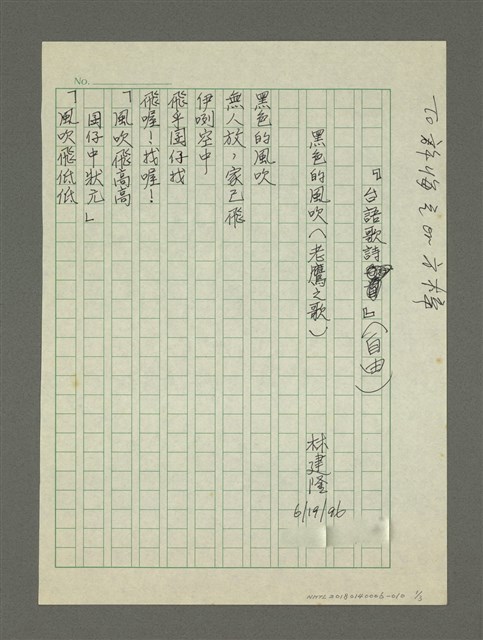 『台語歌詩』（自由）
黑色的風吹（老鷹之歌）
林建隆
6/19/96
黑色的風吹
無人放，家己飛
伊咧空中
飛乎囝仔找
飛喔！找喔！
「風吹飛高高
囝仔中狀元」
「風吹飛低低
No.
NMTL20180140006-010 1/3